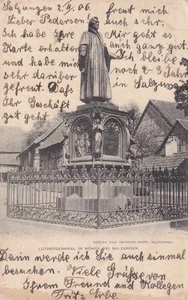 Salzungen 2.VI.06.
Lieber Pedersen!
Ich habe Ihre
Karte erhalten
und habe mich
sehr darüber
gefreut. Daß
Ihr Geschäft
gut geht
freut mich
auch sehr.
Mir geht es
auch ganz gut.
Ich bleibe
noch 2-3 Jahre
in Salzungen
VERLAG VON
LUTHERDENKMAL IN MÖHRA BEI SALZUNGEN.
Dann werde ich Sie auch einmal
besuchen. Viele Grüße von
Ihrem Freund und Kollegen
Fritz Erbe